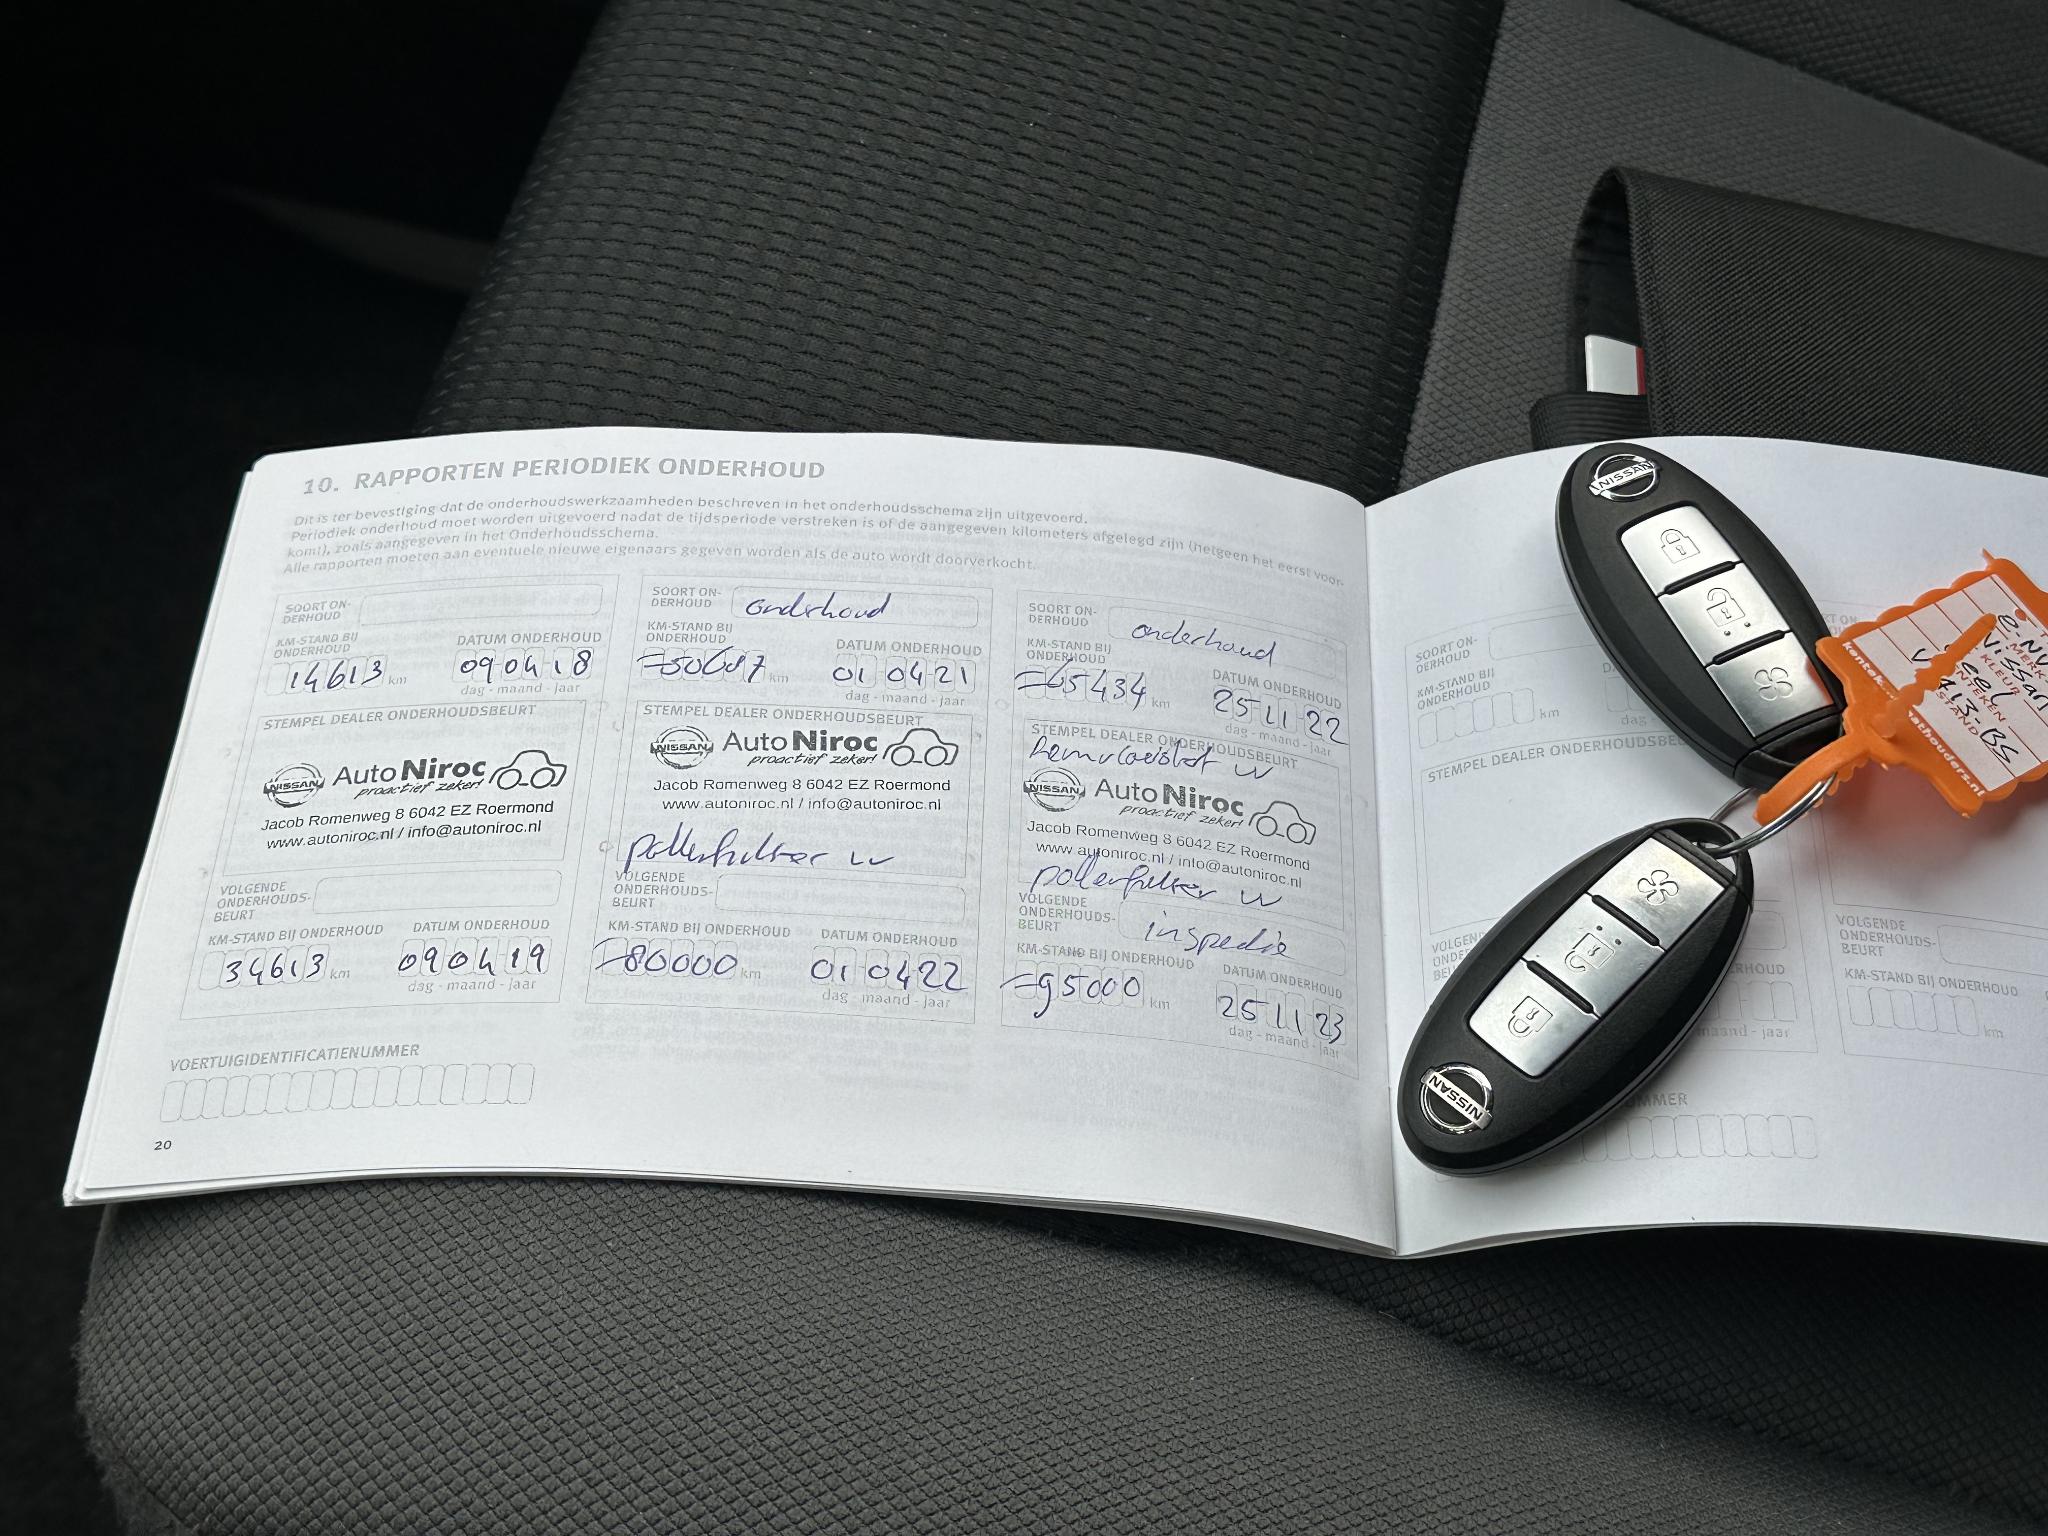 10. RAPPORTEN PERIODIEK ONDERHOUD
Dit is ter bevestiging dat de onderhoudswerkzaamheden beschreven in het onderhoudsschema zijn uitgevoerd.
Periodiek onderhoud moet worden uitgevoerd nadat de tijdsperiode verstreken is of de aangegeven kilometers afgelegd zijn (hetgeen het eerst voor-
komt), zoals aangegeven in het Onderhoudsschema.
Alle rapporten moeten aan eventuele nieuwe eigenaars gegeven worden als de auto wordt doorverkocht.
SOORT ON-
DERHOUD
KM-STAND BIJ
ONDERHOUD
DATUM ONDERHOUD
14613 km
09 04 18
dag - maand - jaar
STEMPEL DEALER ONDERHOUDSBEURT
NISSAN Auto Niroc
proactief zeker!
Jacob Romenweg 8 6042 EZ Roermond
www.autoniroc.nl / info@autoniroc.nl
VOLGENDE
ONDERHOUDS-
BEURT
KM-STAND BIJ ONDERHOUD
DATUM ONDERHOUD
34613 km
09 04 19
dag - maand - jaar
SOORT ON-
DERHOUD
onderhoud
KM-STAND BIJ
ONDERHOUD
DATUM ONDERHOUD
km
01 04 21
dag - maand - jaar
STEMPEL DEALER ONDERHOUDSBEURT
NISSAN Auto Niroc
proactief zeker!
Jacob Romenweg 8 6042 EZ Roermond
www.autoniroc.nl / info@autoniroc.nl
pollenfilter vv
VOLGENDE
ONDERHOUDS-
BEURT
KM-STAND BIJ ONDERHOUD
DATUM ONDERHOUD
80000 km
01 04 22
dag - maand - jaar
SOORT ON-
DERHOUD
onderhoud
KM-STAND BIJ
ONDERHOUD
DATUM ONDERHOUD
65434 km
25 11 22
dag - maand - jaar
STEMPEL DEALER ONDERHOUDSBEURT
remvloeistof vv
NISSAN Auto Niroc
proactief zeker!
Jacob Romenweg 8 6042 EZ Roermond
www.autoniroc.nl / info@autoniroc.nl
pollenfilter vv
VOLGENDE
ONDERHOUDS-
BEURT
inspectie
KM-STAND BIJ ONDERHOUD
DATUM ONDERHOUD
95000 km
25 11 23
dag - maand - jaar
VOERTUIGIDENTIFICATIENUMMER
20
SOORT ON-
DERHOUD
KM-STAND BIJ
ONDERHOUD
km
dag
STEMPEL DEALER
KM-STAND BIJ ONDERHOUD
km
maand - jaar
VOLGENDE
ONDERHOUDS-
BEURT
KM-STAND BIJ ONDERHOUD
km
NISSAN
NISSAN